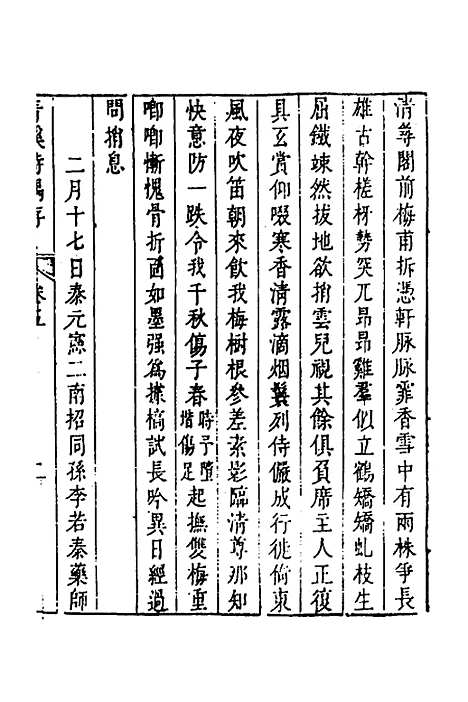 清尊閣前梅甫拆憑軒脉脉霏香雪中有兩株爭長
雄古幹槎枒勢突兀昂昂雞羣似立鶴矯矯虬枝生
屈鐵竦然拔地欲捎雲兒視其餘俱負席主人正復
具玄賞仰啜寒香清露滴烟鬟列侍儼成行徙倚東
風夜吹笛朝來飲我梅樹根參差素影臨清尊那知
快意防一跌令我千秋傷子春時予墮堦傷足起撫雙梅重
唧唧慚愧骨折面如墨强為搽槁試長吟異日經過
問捎息
二月十七日秦元寒二南招同孫李若秦藥師
青溪詩偶存
卷五